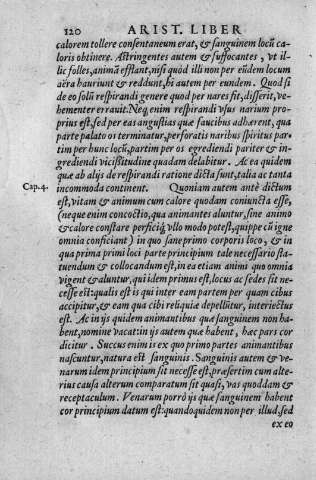 120 ARIST. LIBER
calorem tollere consentaneum erat, & sanguinem locū ca⸗
loris obtinere. Astringentes autem & suffocantes, vt il⸗
lic folles, animā efflant, nisi quòd illi non per eūdem locum
aëra hauriunt & reddunt, hi autem per eundem. Quod si
de eo solū respirandi genere quod per nares fit, disserit, ve⸗
hementer errauit. Neq; enim respirandi vsus narium pro⸗
prius est, sed per eas angustias quæ faucibus adhærent, qua
parte palato os terminatur, perforatis naribus spiritus par⸗
tim per hunc locū, partim per os egrediendi pariter & in⸗
grediendi vicissitudine quadam delabitur. Ac ea quidem
quæ ab alijs de respirandi ratione dicta sunt, talia ac tanta
Cap. 4. incommoda continent. Quoniam autem antè dictum
est, vitam & animum cum calore quodam coniuncta esse,
(neque enim concoctio, qua animantes aluntur, sine animo
& calore constare perficiq́; vllo modo potest, quippe cū igne
omnia conficiant) in quo sane primo corporis loco, & in
qua prima primi loci parte principium tale necessario sta⸗
tuendum & collocandum est, in ea etiam animi quo omnia
vigent & aluntur, qui idem primus est, locus ac sedes sit ne⸗
cesse est: qualis est is qui inter eam partem per quam cibus
accipitur, & eam qua cibi reliquiæ depellitur, interiectus
est. Ac in ijs quidem animantibus quæ sanguinem non ha⸗
bent, nomine vacat: in ijs autem quæ habent, hæc pars cor
dicitur. Succus enim is ex quo primo partes animantibus
nascuntur, natura est sanguinis. Sanguinis autem & ve⸗
narum idem principium sit necesse est, præsertim cum alte⸗
rius causa alterum comparatum sit quasi, vas quoddam &
receptaculum. Venarum porrò ijs quæ sanguinem habent
cor principium datum est: quandoquidem non per illud, sed
ex eo